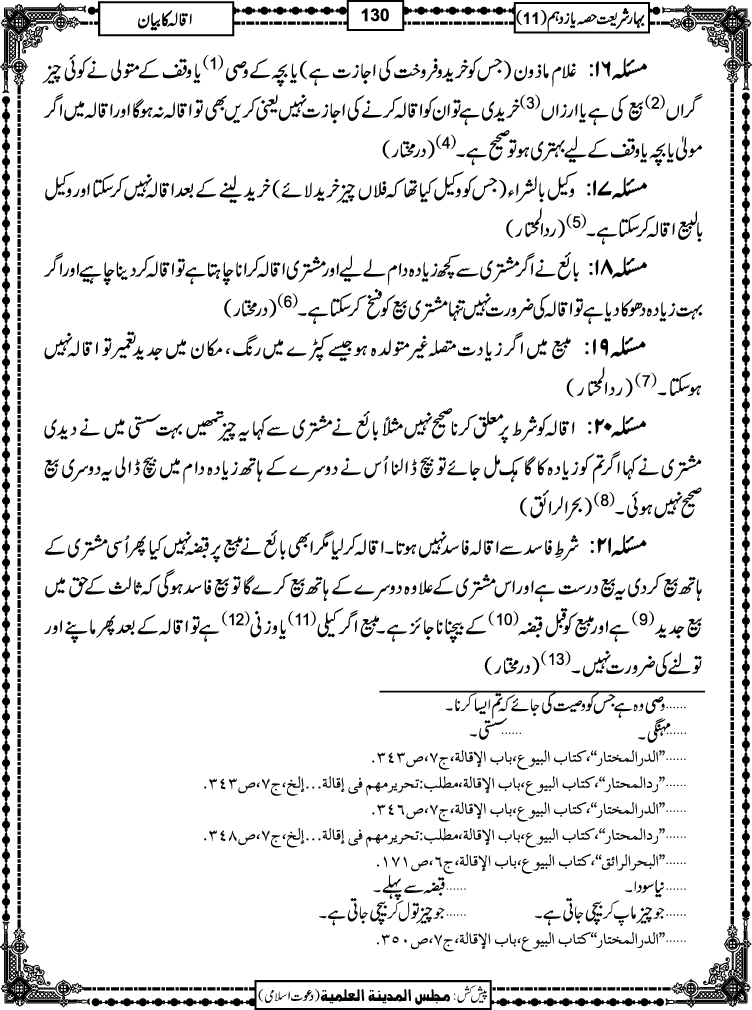 بہارشریعت حصہ یازدہم (11)
130
اقالہ کا بیان
مسئلہ ۱۶: غلام ماذون (جس کو خرید و فروخت کی اجازت ہے) یا بچہ کے وصی (1) یا وقف کے متولی نے کوئی چیز
گراں (2) بیع کی ہے یا ارزاں (3) خریدی ہے تو ان کو اقالہ کرنے کی اجازت نہیں یعنی کریں بھی تو اقالہ نہ ہوگا اور اقالہ میں اگر
مولیٰ یا بچہ یا وقف کے لیے بہتری ہو تو صحیح ہے۔ (4) (درمختار)
مسئلہ ۱۷: وکیل بالشراء (جس کو وکیل کیا تھا کہ فلاں چیز خرید لائے) خرید لینے کے بعد اقالہ نہیں کرسکتا اور وکیل
بالبیع اقالہ کرسکتا ہے۔ (5) (ردالمحتار)
مسئلہ ۱۸: بائع نے اگر مشتری سے کچھ زیادہ دام لے لیے اور مشتری اقالہ کرانا چاہتا ہے تو اقالہ کردینا چاہیے اور اگر
بہت زیادہ دھوکا دیا ہے تو اقالہ کی ضرورت نہیں تنہا مشتری بیع کو فسخ کرسکتا ہے۔ (6) (درمختار)
مسئلہ ۱۹: مبیع میں اگر زیادت متصلہ غیر متولدہ ہو جیسے کپڑے میں رنگ، مکان میں جدید تعمیر تو اقالہ نہیں
ہوسکتا۔ (7) (ردالمحتار)
مسئلہ ۲۰: اقالہ کو شرط پر معلق کرنا صحیح نہیں مثلاً بائع نے مشتری سے کہا یہ چیز تمھیں بہت سستی میں نے دیدی
مشتری نے کہا اگر تم کو زیادہ کا گاہک مل جائے تو بیچ ڈالنا اُس نے دوسرے کے ہاتھ زیادہ دام میں بیچ ڈالی یہ دوسری بیع
صحیح نہیں ہوئی۔ (8) (بحرالرائق)
مسئلہ ۲۱: شرط فاسد سے اقالہ فاسد نہیں ہوتا۔ اقالہ کرلیا مگر ابھی بائع نے مبیع پر قبضہ نہیں کیا پھر اُسی مشتری کے
ہاتھ بیع کردی یہ بیع درست ہے اور اس مشتری کے علاوہ دوسرے کے ہاتھ بیع کرے گا تو بیع فاسد ہوگی کہ ثالث کے حق میں
بیع جدید (9) ہے اور مبیع کو قبل قبضہ (10) کے بیچنا ناجائز ہے۔ مبیع اگر کیلی (11) یا وزنی (12) ہے تو اقالہ کے بعد پھر ماپنے اور
تولنے کی ضرورت نہیں۔ (13) (درمختار)
......وصی وہ ہے جس کو وصیت کی جائے کہ تم ایسا کرنا۔
......مہنگی۔ ......سستی۔
......"الدرالمختار"، کتاب البیوع، باب الإقالة، ج۷، ص۳۴۳.
......"ردالمحتار"، کتاب البیوع، باب الإقالة، مطلب: تحریر مہم فی إقالة...إلخ، ج۷، ص۳۴۳.
......"الدرالمختار"، کتاب البیوع، باب الإقالة، ج۷، ص۳۴۶.
......"ردالمحتار"، کتاب البیوع، باب الإقالة، مطلب: تحریر مہم فی إقالة...إلخ، ج۷، ص۳۴۸.
......"البحرالرائق"، کتاب البیوع، باب الإقالة، ج۶، ص۱۷۱.
......نیا سودا۔ ......قبضہ سے پہلے۔
......جو چیز ماپ کر بیچی جاتی ہے۔ ......جو چیز تول کر بیچی جاتی ہے۔
......"الدرالمختار" کتاب البیوع، باب الإقالة، ج۷، ص۳۵۰.
پیش کش: مجلس المدينة العلمية (دعوت اسلامی)